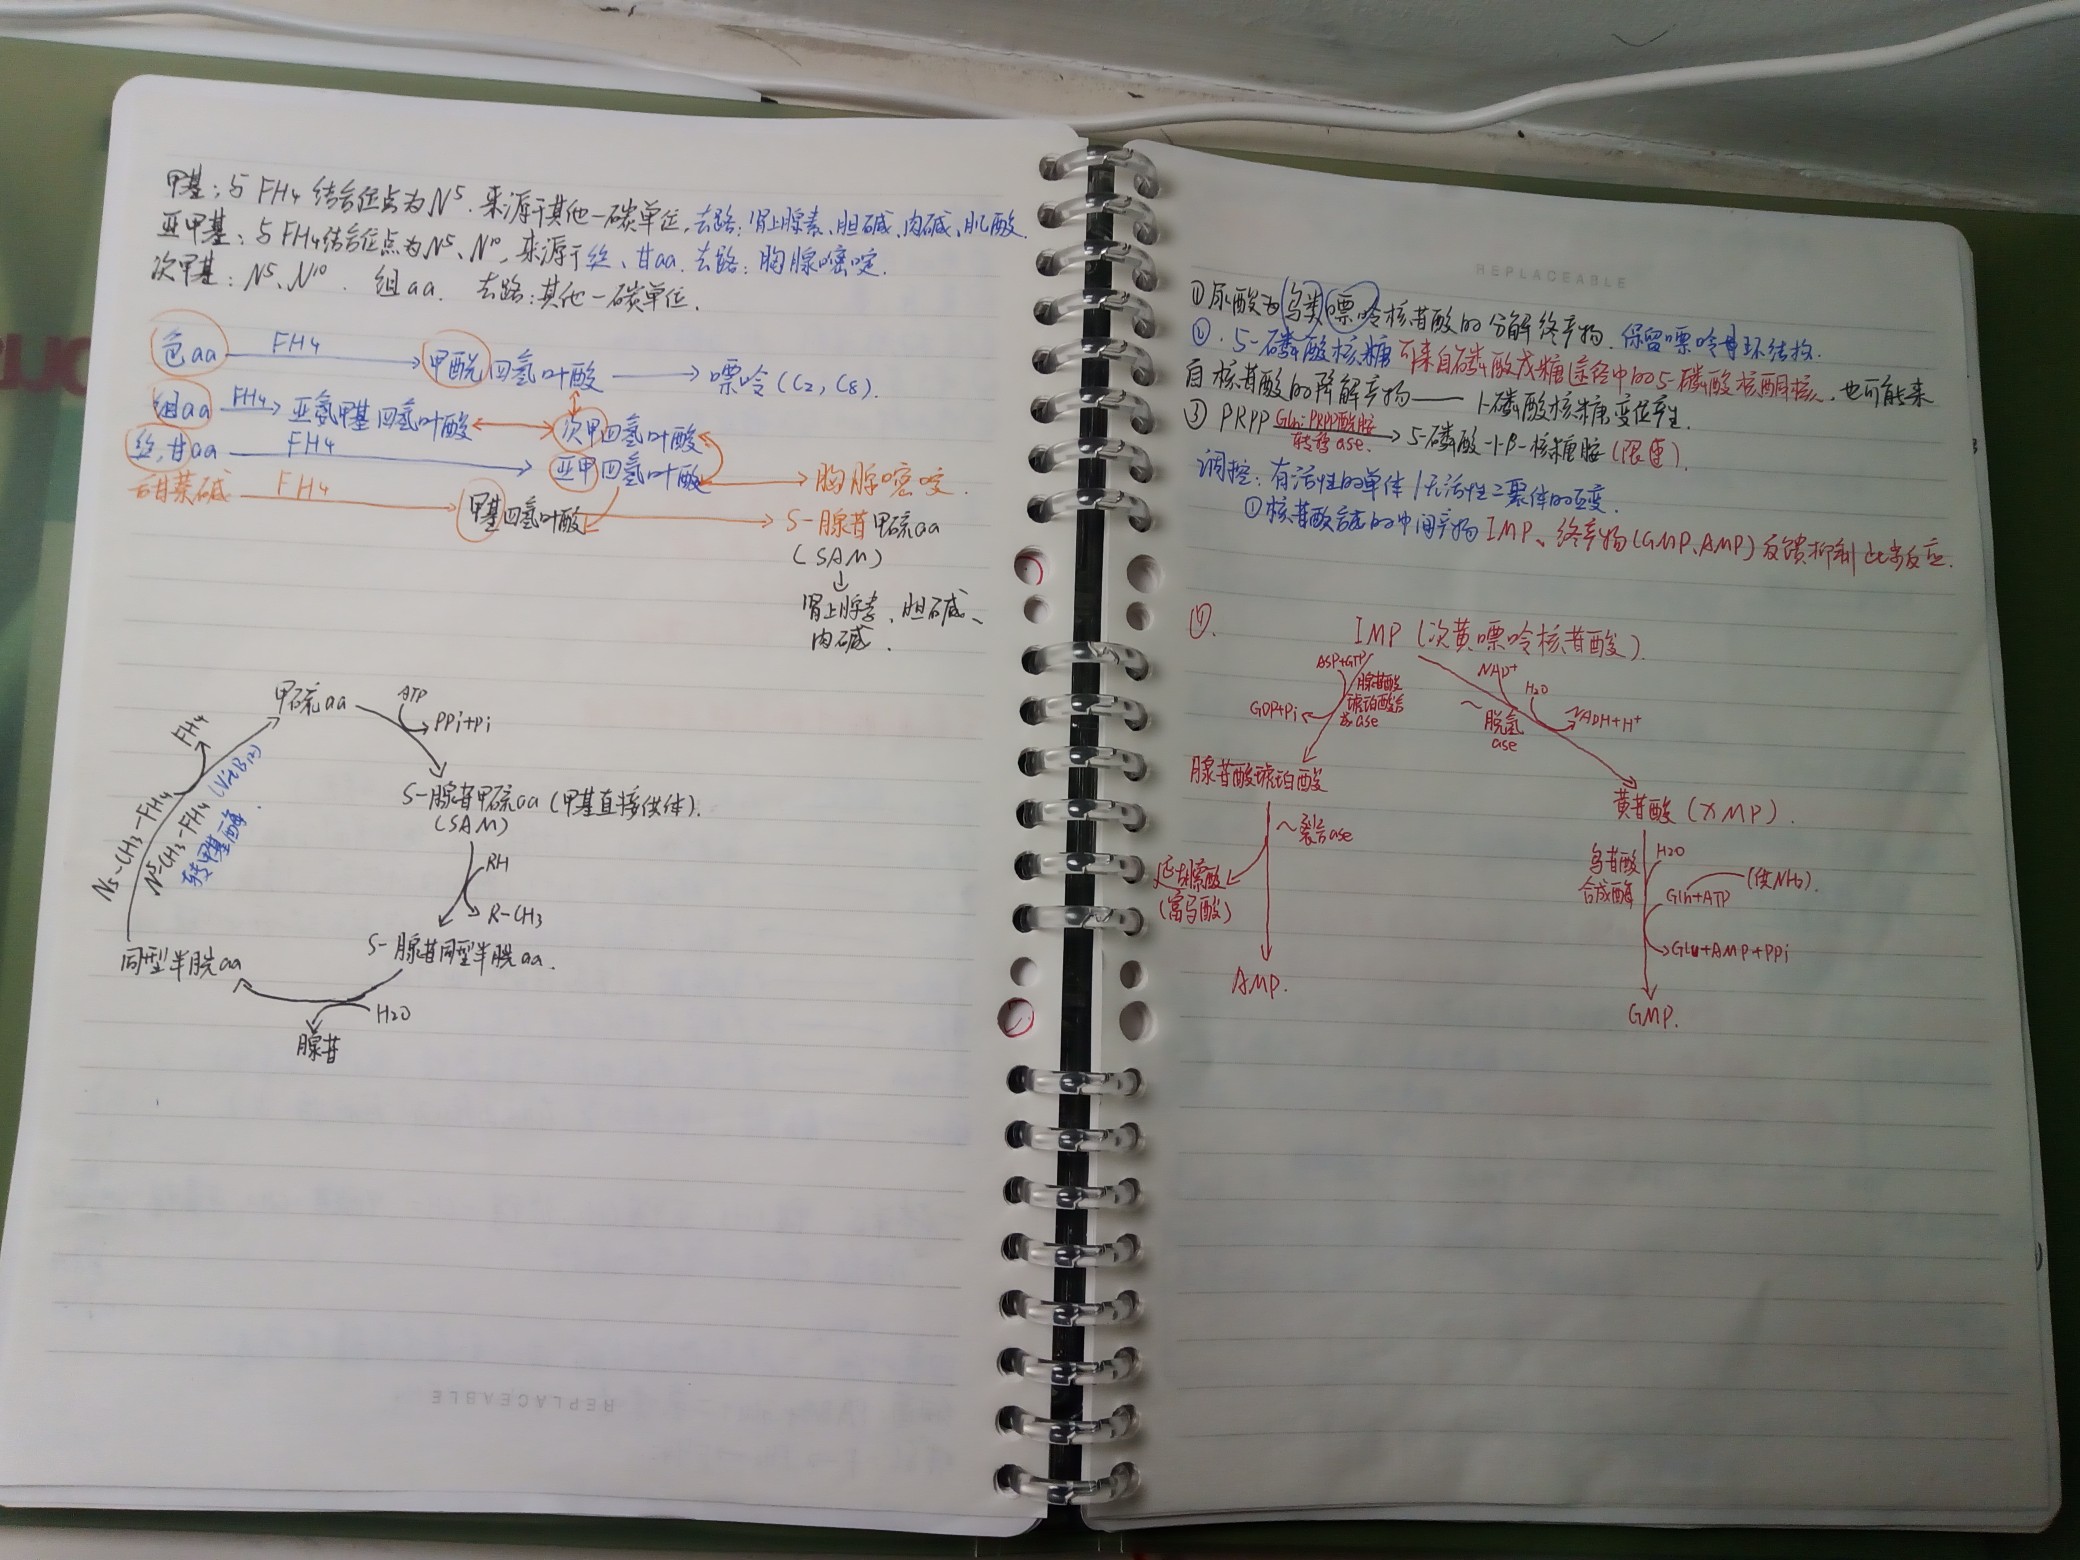 甲基：与FH4结合位点为N5.来源于其他一碳单位,去路:肾上腺素、胆碱、肉碱、肌酸.
亚甲基：与FH4结合位点为N5、N10,来源于丝、甘aa.去路：胸腺嘧啶.
次甲基：N5、N10. 组aa. 去路：其他一碳单位.
色aa FH4 甲酰四氢叶酸 嘌呤(C2,C8).
组aa FH4 亚氨甲基四氢叶酸 次甲四氢叶酸
丝,甘aa FH4 亚甲四氢叶酸 胸腺嘧啶.
甜菜碱 FH4 甲基四氢叶酸 S-腺苷甲硫aa
(SAM)
肾上腺素、胆碱、
肉碱.
甲硫aa
ATP
PPi+Pi
S-腺苷甲硫aa(甲基直接供体).
(SAM)
RH
R-CH3
S-腺苷同型半胱aa.
H2O
腺苷
同型半胱aa
N5-CH3-FH4
FH4
N5-CH3-FH4 (VitB12)
转甲基酶.
REPLACEABLE
REPLACEABLE
①尿酸为鸟类嘌呤核苷酸的分解终产物.保留嘌呤母环结构.
②.5-磷酸核糖可来自磷酸戊糖途径中的5-磷酸核酮糖,也可能来
自核苷酸的降解产物——1-磷酸核糖变位产生.
③PRPP Gln:PRPP酰胺转移ase. 5-磷酸-1-β-核糖胺(限速).
调控：有活性的单体/无活性二聚体的互变.
①核苷酸合成的中间产物IMP、终产物(GMP、AMP)反馈抑制此步反应.
④. IMP(次黄嘌呤核苷酸).
ASP+GTP
腺苷酸
琥珀酸合
成ase
GDP+Pi
腺苷酸琥珀酸
~裂合ase
延胡索酸
(富马酸)
AMP.
NAD+
H2O
~脱氢
ase
NADH+H+
黄苷酸(XMP).
鸟苷酸
合成酶
H2O
Gln+ATP (供NH2).
Glu+AMP+PPi
GMP.